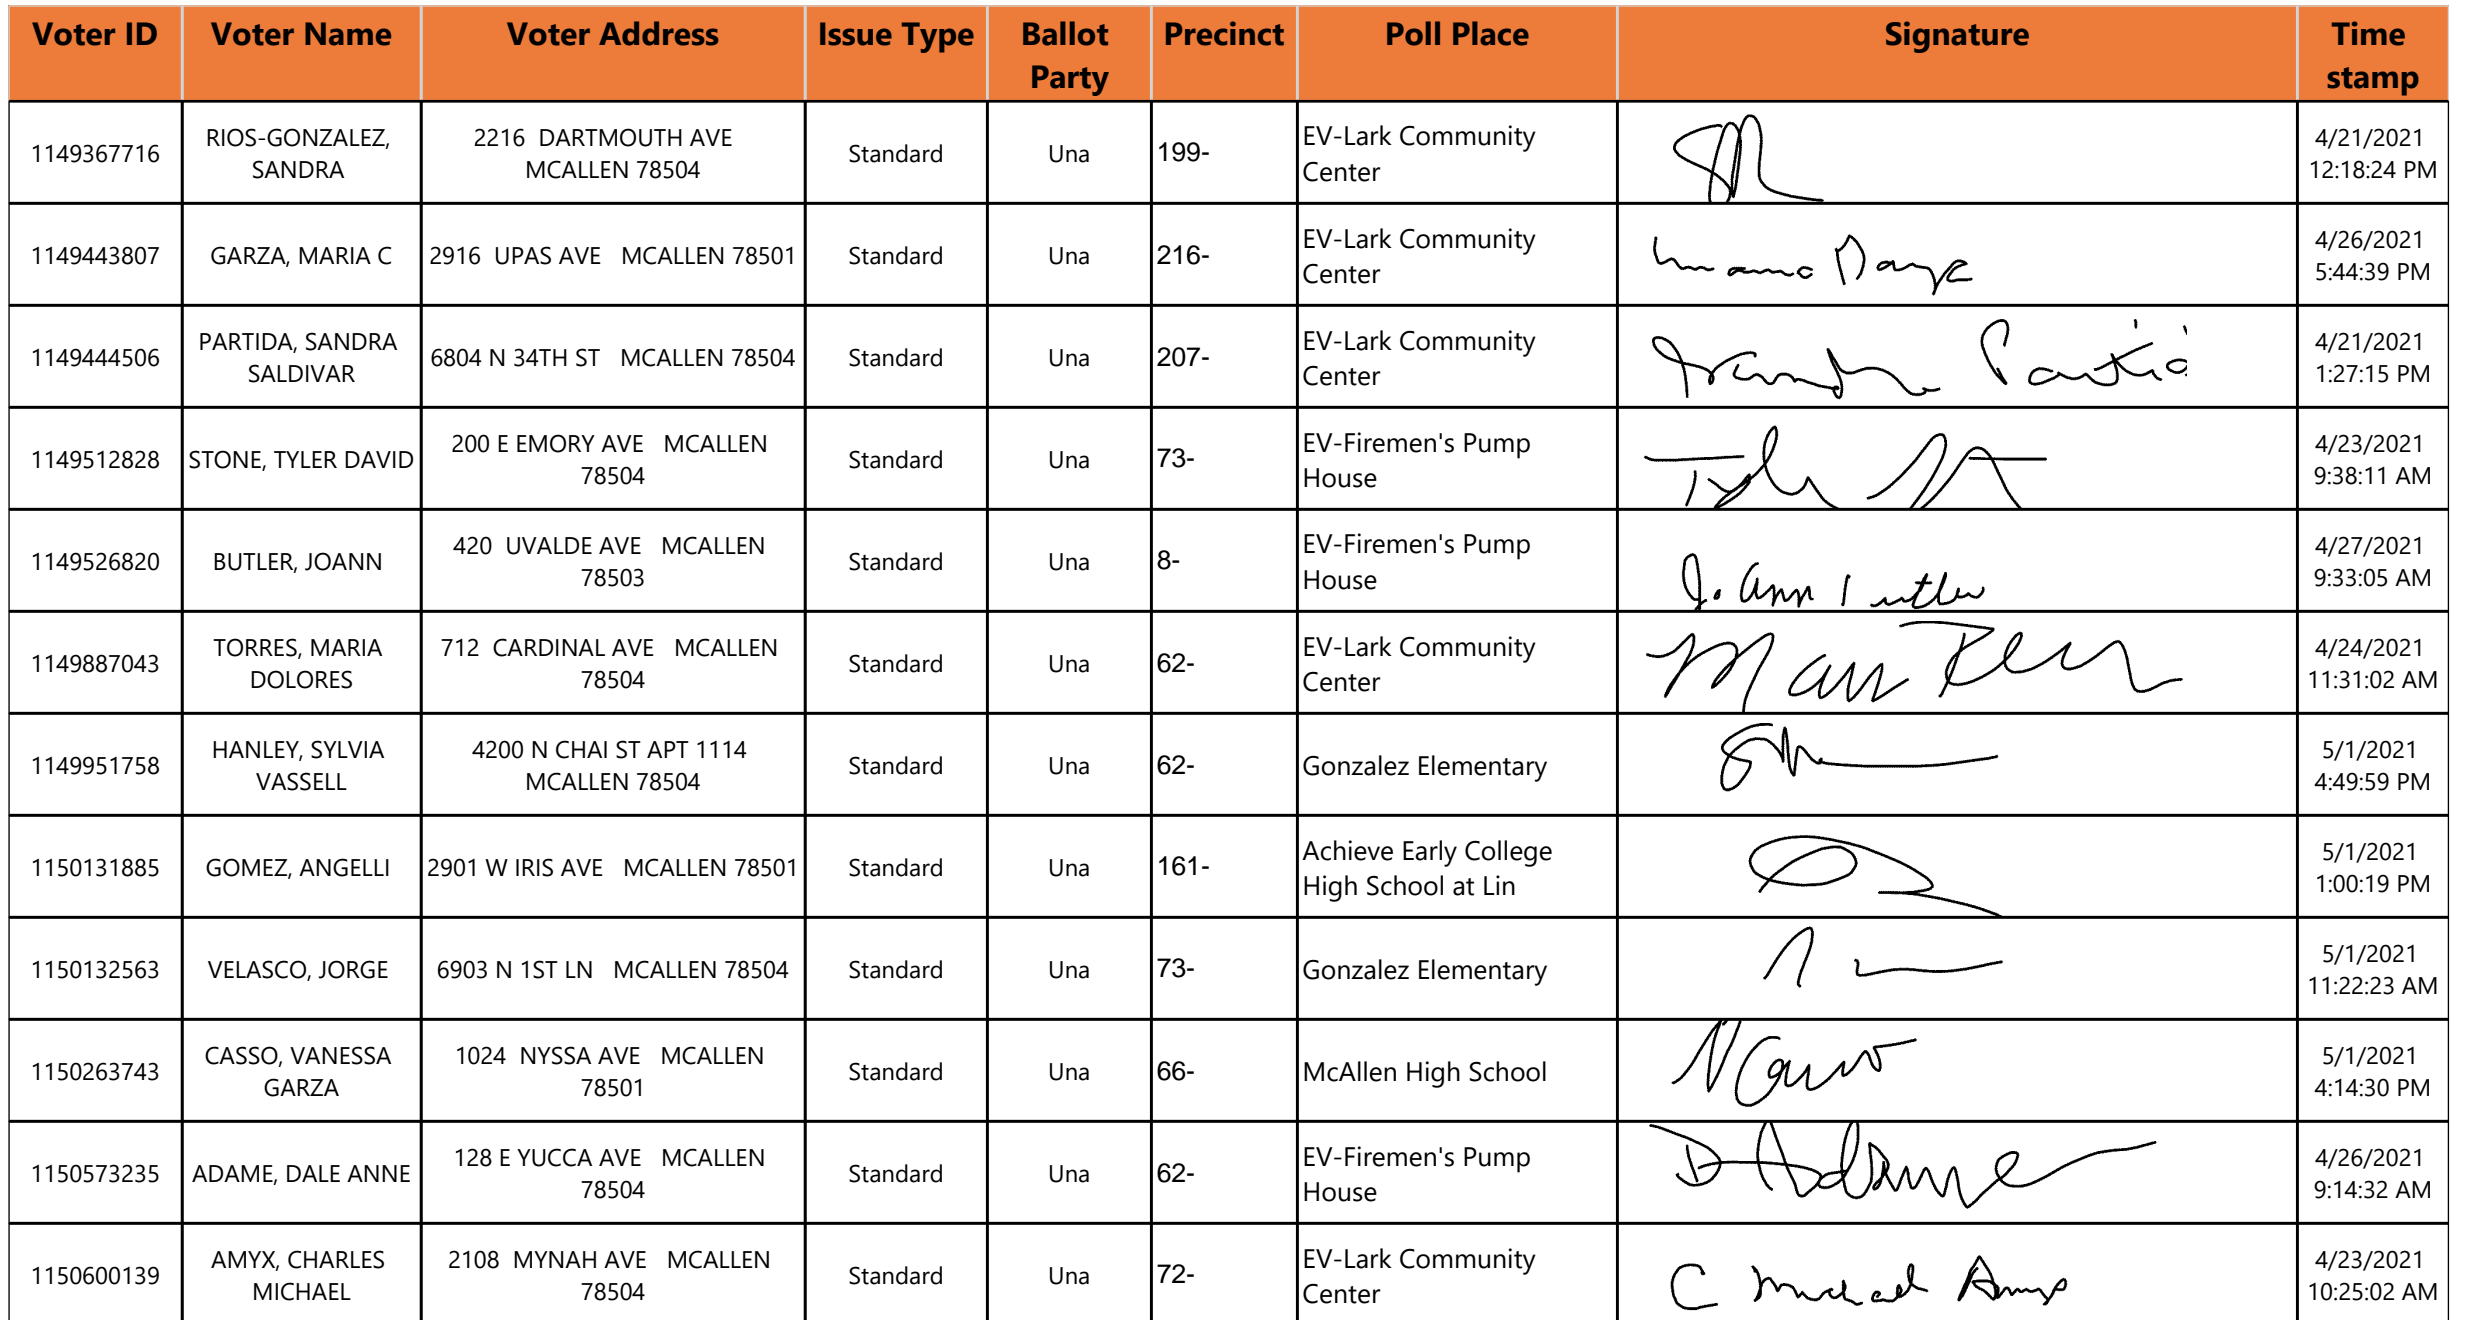 Voter ID Voter Name Voter Address Issue Type Ballot Party Precinct Poll Place Signature Time stamp
1149367716 RIOS-GONZALEZ, SANDRA 2216 DARTMOUTH AVE MCALLEN 78504 Standard Una 199- EV-Lark Community Center 4/21/2021 12:18:24 PM
1149443807 GARZA, MARIA C 2916 UPAS AVE MCALLEN 78501 Standard Una 216- EV-Lark Community Center 4/26/2021 5:44:39 PM
1149444506 PARTIDA, SANDRA SALDIVAR 6804 N 34TH ST MCALLEN 78504 Standard Una 207- EV-Lark Community Center 4/21/2021 1:27:15 PM
1149512828 STONE, TYLER DAVID 200 E EMORY AVE MCALLEN 78504 Standard Una 73- EV-Firemen's Pump House 4/23/2021 9:38:11 AM
1149526820 BUTLER, JOANN 420 UVALDE AVE MCALLEN 78503 Standard Una 8- EV-Firemen's Pump House 4/27/2021 9:33:05 AM
1149887043 TORRES, MARIA DOLORES 712 CARDINAL AVE MCALLEN 78504 Standard Una 62- EV-Lark Community Center 4/24/2021 11:31:02 AM
1149951758 HANLEY, SYLVIA VASSELL 4200 N CHAI ST APT 1114 MCALLEN 78504 Standard Una 62- Gonzalez Elementary 5/1/2021 4:49:59 PM
1150131885 GOMEZ, ANGELLI 2901 W IRIS AVE MCALLEN 78501 Standard Una 161- Achieve Early College High School at Lin 5/1/2021 1:00:19 PM
1150132563 VELASCO, JORGE 6903 N 1ST LN MCALLEN 78504 Standard Una 73- Gonzalez Elementary 5/1/2021 11:22:23 AM
1150263743 CASSO, VANESSA GARZA 1024 NYSSA AVE MCALLEN 78501 Standard Una 66- McAllen High School 5/1/2021 4:14:30 PM
1150573235 ADAME, DALE ANNE 128 E YUCCA AVE MCALLEN 78504 Standard Una 62- EV-Firemen's Pump House D Adame 4/26/2021 9:14:32 AM
1150600139 AMYX, CHARLES MICHAEL 2108 MYNAH AVE MCALLEN 78504 Standard Una 72- EV-Lark Community Center C Michael Amyx 4/23/2021 10:25:02 AM